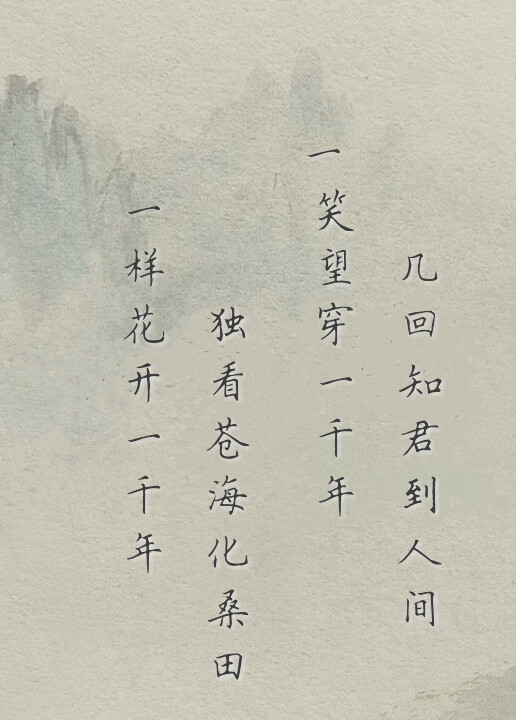 一样花开一千年
独看苍海化桑田
一笑望穿一千年
几回知君到人间